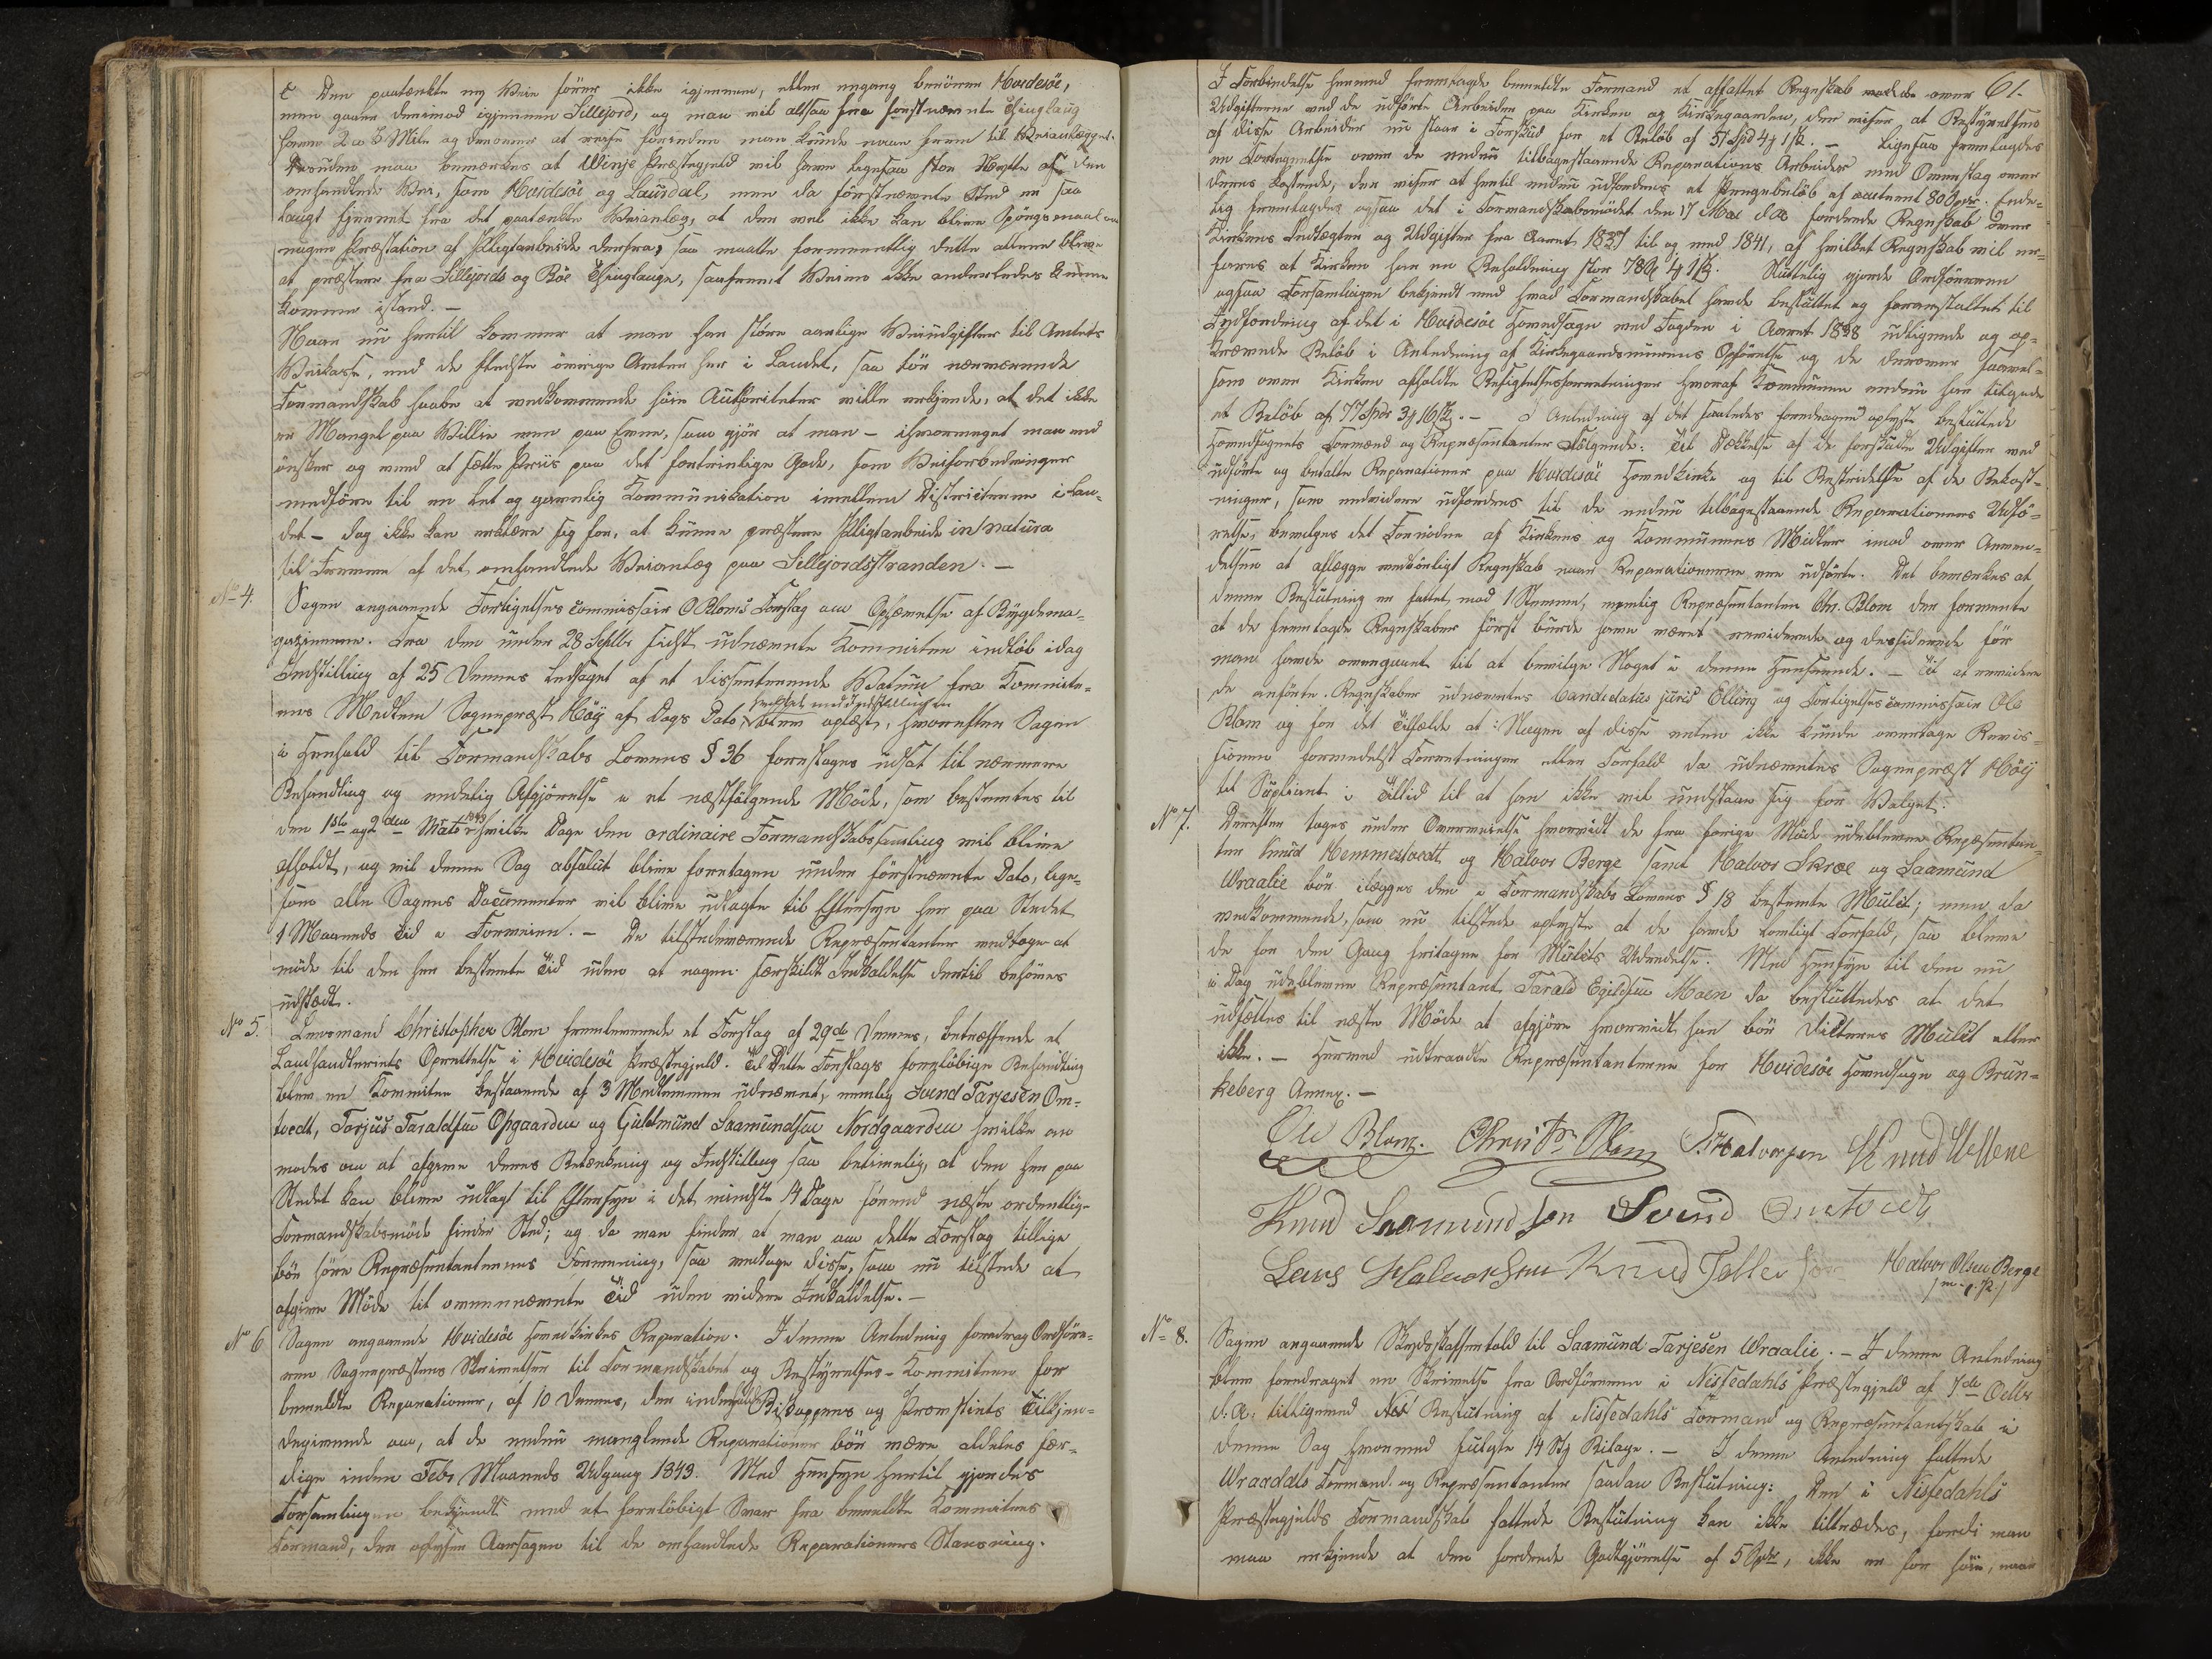 c Den paatænkte ny Veie fører ikke igjennem, eller engang berörer Hvidesöe,
men gaaer derimod igjennem Sillejord, og man vil altsaa fra førstnævnte Thinglaug
have 2 a 3 Mile og derover at reise förenden man kunde naae frem til Veianlægget.
Desuden maa bemærkes at Winje Præstegjeld vil have ligesaa stor Nytte af den
omhandlede Vei, som Hvidesöe og Laurdal, men da förstnævnte Sted er saa
langt fjernet fra det paatænkte Veianlæg, at der vel ikke kan blive Spörgsmaal om
nogen Præstation af Pligtarbeide derfra, saa maatte formeentlig dette allene blive
at præstere fra Sillejords og Böe Thinglauge, saafremt Veien ikke anderledes kunne
komme istand. —
Naar nu hertil kommer at man har større aarlige Veiudgifter til Amtets
Veikasse, end de fleste övrige Amter her i Landet, saa tör nærværende
Formandskab haabe at vedkommende höie Authoriteter ville erkjende, at det ikke
er Mangel paa Villie men paa Evne, som gjör at man — ihvormeget man end
önsker og veed at sætte Priis paa det fortrinlige Gode, som Veiforbedringer
medföre til en let og gavnlig Kommunikation imellem Districterne i Lan-
det — dog ikke kan erklære sig for, at kunne præstere Pligtarbeide in natura
til Fremme af det omhandlede Veianlæg paa Sillejordsstranden. —
No 4. Sagen angaaende Forligelsescommissair O Bloms Forslag om Ophævelse af Bygdema-
gazinerne. Fra den under 28 Septbr sidst udnævnte Kommitee indlöb idag
Indstilling af 25 dennes ledsaget af et dissenterende Votum fra Kommitee-
ens Medlem Sognepræst Höÿ af Dags Dato, hvilket med Indstillingen blev oplæst, hvorefter Sagen
i Henhold til Formandskabs Lovens § 36 foreslages udsat til nærmere
Behandling og endelig Afgjörelse i et næstfölgende Möde, som bestemtes til
den 1ste og 2den Mats 1843 hvilke Dage den ordinaire Formandskabssamling vil blive
afholdt, og vil denne Sag absolut blive foretagen under förstnævnte Dato, lige-
som alle Sagens Documenter vil blive udlagte til Eftersyn her paa Stedet
1 Maaneds Tid i Forveien. — De tilstedeværende Repræsentanter vedtoge at
möde til den her bestemte Tid uden at nogen særskildt Indkaldelse dertil behöves
udstædt.
No 5. Lensmand Christopher Blom fremleverede et Forslag af 29de dennes, betræffende et
Landhandleries Oprettelse i Hvidesöe Præstegjeld. Til dette Forslags foreløbige Behandling
blev en Kommitee bestaaende af 3 Medlemmer udnævnt, nemlig Svend Tarjesen Om-
tvedt, Torjus Taraldsen Opgaarden og Guldmund Saamundsen Nordgaarden hvilke an-
modes om at afgive deres Betænkning og Indstilling saa betimelig, at den her paa
Stedet kan blive udlagt til Eftersyn i det mindste 14 Dage förend næste ordentlig-
Formandskabsmöde finder Sted; og da man finder, at man om dette Forslag tillige
bör höre Repræsentanternes Formening, saa vedtage disse, som nu tilstede at
afgive Möde til ovennævnte Tid uden videre Indkaldelse. —
No 6 Sagen angaaende Hvidesöe Hovedkirkes Reparation. I denne Anledning foredrog Ordföre-
ren Sognepræstens Skrivelse til Formandskabet og Bestyrelses-Kommiteen for
bemeldte Reparationer, af 10 dennes, der indeholder Biskoppens og Provstiets Tilkjen-
degivende om, at de endnu manglende Reparationer bör være aldeles fær-
dige inden Febr Maaneds Udgang 1843. Med Hensyn hertil gjordes
Forsamlingen bekjendt med et foreløbigt Svar fra bemeldte Kommitees
Formand, der oplyser Aarsagen til de omhandlede Reparationers Standsning.
61.
I Forbindelse hermed fremlagde bemeldte Formand et affattet Regnskab over
Udgifterne ved de udförte Arbeider paa Kirken og Kirkegaarden, der viser, at Bestyrelsen
af disse Arbeider nu staar i Forskud for et Belöb af 51 Spd 4 ƒ 1 ß. — Ligesaa fremlagdes
en Fortegnelse over de endnu tilbagestaaende Reparations Arbeider med Overslag over
deres Kostende, der viser at hertil endnu udfordres et Pengebelöb af omtrent 80 Spdr. Ende-
lig fremlagdes ogsaa det i Formandskabsmödet den 17 Mai d. A. fordrede Regnskab over
Kirkens Indtægter og Udgifter fra Aaret 1837 til og med 1841, af hvilket Regnskab vil er-
fares at Kirken har en Beholdning stor 78 Spd 4 ƒ 1 ß. Sluttelig gjorde Ordföreren
ogsaa Forsamlingen bekjendt med hvad Formandskabet havde besluttet og foranstaltet til
Indfordring af det i Hvidesöe Hovedsogn ved Fogden i Aaret 1838 udlignede og op-
krævede Belöb i Anledning af Kirkegaardsmurens Opförelse og de derover saavel-
som over Kirken afholdte Besigtelsesforretninger hvoraf Kommunen endnu har tilgode
et Belöb af 77 Spdr 3 ƒ 16 ß. — I Anledning af det saaledes foredragne og oplyste besluttede
Hovedsognets Formænd og Repræsentanter Fölgende: Til Dækkelse af de forskudte Udgifter ved
udförte og betalte Reparationer paa Hvidesöe Hovedkirke og til Bestridelse af de Bekost-
ninger, som endvidere udfordres til de endnu tilbagestaaende Reparationers Udfö-
relse, bevilges det Fornödne af Kirkens og Kommunens Midler imod over Anven-
delsen at aflægge vedbörligt Regnskab naar Reparationerne ere udförte. Det bemærkes at
denne Beslutning er fattet mod 1 Stemme, nemlig Repræsentanten Chr. Blom der formente
at de fremlagde Regnskaber först burde have været reviderede og desiderede för
man havde overgaaet til at bevilge Noget i denne Henseende. — Til at revidere
de anförte Regnskaber udnævntes Candidatus juris Elling og Forligelsescommissair Ole
Blom og for det Tilfælde at Nogen af disse enten ikke kunde overtage Revis-
sionen formedelst Forretninger eller Forfald da udnævntes Sognepræst Höÿ
til Supleant i Tillid til at han ikke vil undslaae sig for Valget.
No 7. Derefter toges under Overveielse hvorvidt de fra forrige Möde udeblevne Repræsentan-
ter Knud Hemmestvedt og Halvor Berge samt Halvor Skree og Saamund
Wraalie bör ilægges den i Formandskabs Lovens § 18 bestemte Mulct; men da
vedkommende, som nu tilstede oplyste at de havde lovligt Forfald, saa bleve
de for den Gang fritagne for Mulcts Udredelse. Med Hensyn til den nu
i Dag udeblevne Repræsentant Tarald Egildsen Moen da besluttedes at det
udsættes til næste Möde at afgjöre hvorvidt han bör dicteres Mulct eller
ikke. — Hermed udtraadte Repræsentanterne for Hvidesöe Hovedsogn og Brun-
keberg Annex. —
Ole Blom. Christr Blom T. Halvorsen Knud
Knud Saamundson Svend Omtvedt
Leivs Halvorsen Knud Tolleson Halvor Olsen Berge
m. p. P.
No 8. Sagen angaaende Skydsskaffertold til Saamund Tarjesen Wraalie. — I denne Anledning
blev foredraget en Skrivelse fra Ordföreren i Nissedahls Præstegjeld af 7de Octbr
d. A. tilligemed Beslutning af Nissedahls Formand og Repræsentantskab i
denne Sag hvormed fulgte 14 Stk Bilage. — I denne Anledning fattede
Wraadals Formænd og Repræsentanter saadan Beslutning: Den i Nissedahls
Præstegjelds Formandskab fattede Beslutning kan ikke tiltrædes, fordi man
maa erkjende at den fordrede Godtgjörelse af 5 Spdr, ikke er for höi, naar